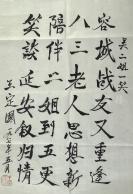 吴二姐一笑
容城战友又重逢
八三老人思想新
陪伴二姐到五更
笑谈延安叙归情
王定国
一九八七年五月